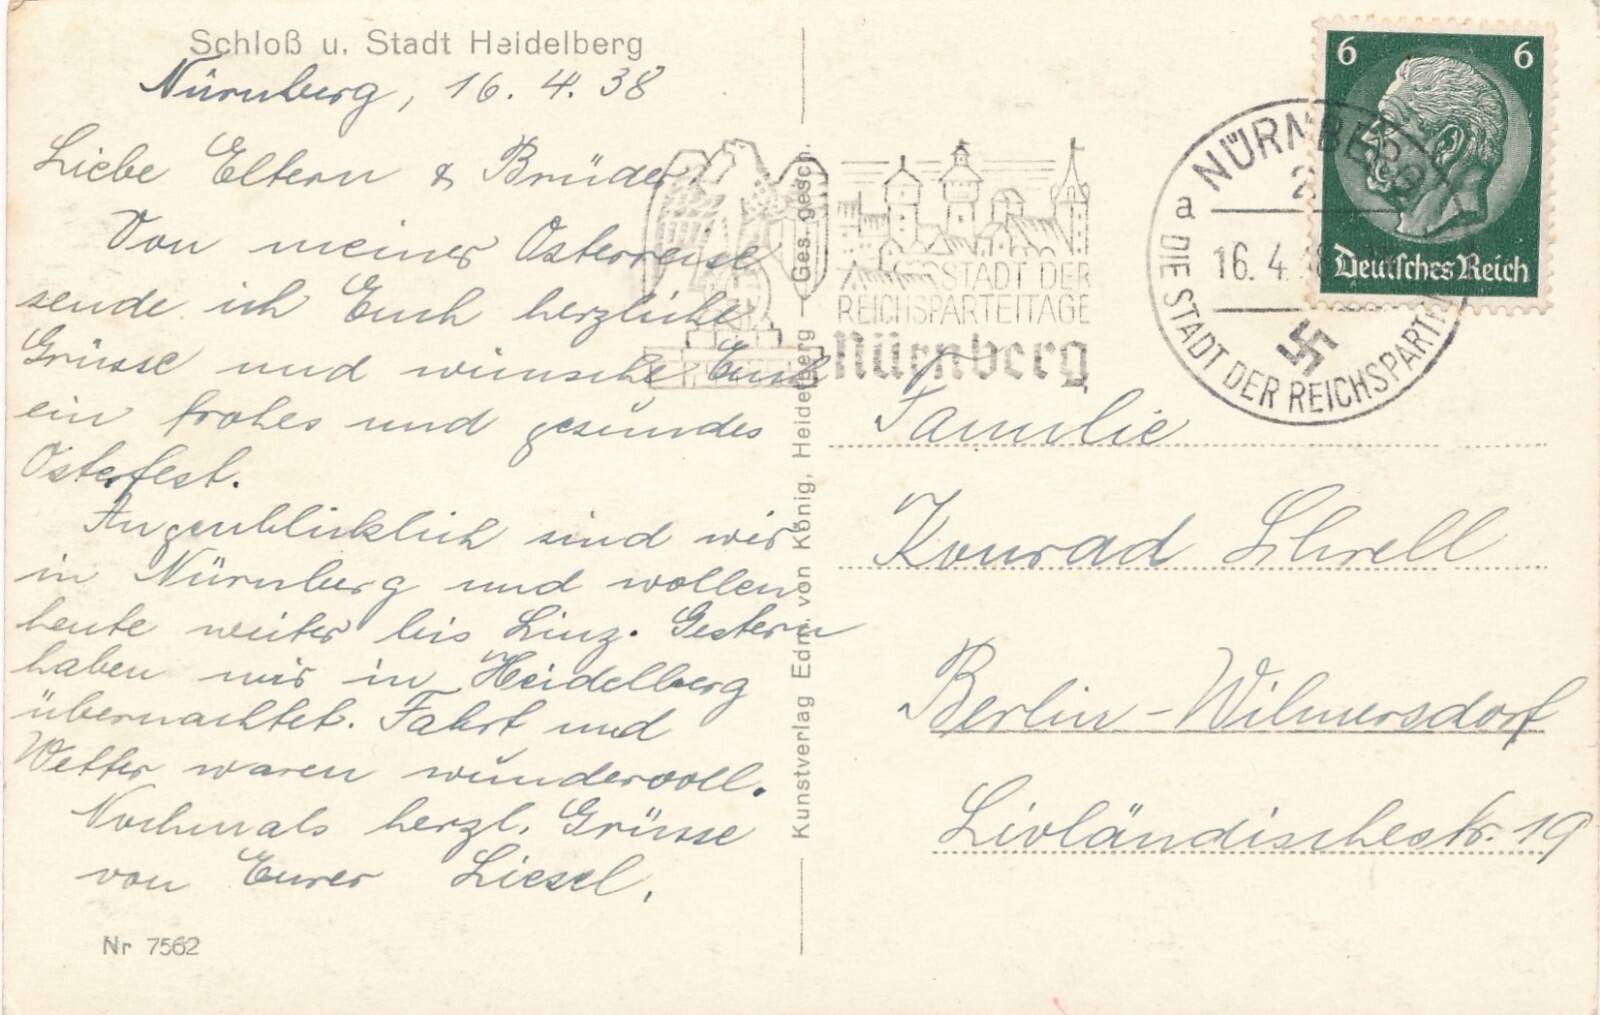 Schloß u. Stadt Heidelberg
Nürnberg, 16. 4. 38
Liebe Eltern & Brüder,
Von meiner Osterreise
sende ich Euch herzliche
Grüsse und wünsche Euch
ein frohes und gesundes
Osterfest.
Augenblicklich sind wir
in Nürnberg und wollen
heute weiter bis Linz. Gestern
haben wir in Heidelberg
übernachtet. Fahrt und
Wetter waren wundervoll.
Nochmals herzl. Grüsse
von Eurer Liesel.
Nr 7562
Kunstverlag Edm. von König, Heidelberg — Ges. gesch.
STADT DER
REICHSPARTEITAGE
Nürnberg
NÜRNBERG 2
a
16. 4.
DIE STADT DER REICHSPARTEI
6 6
Deutsches Reich
Familie
Konrad Schrell
Berlin-Wilmersdorf
Livländischestr. 19